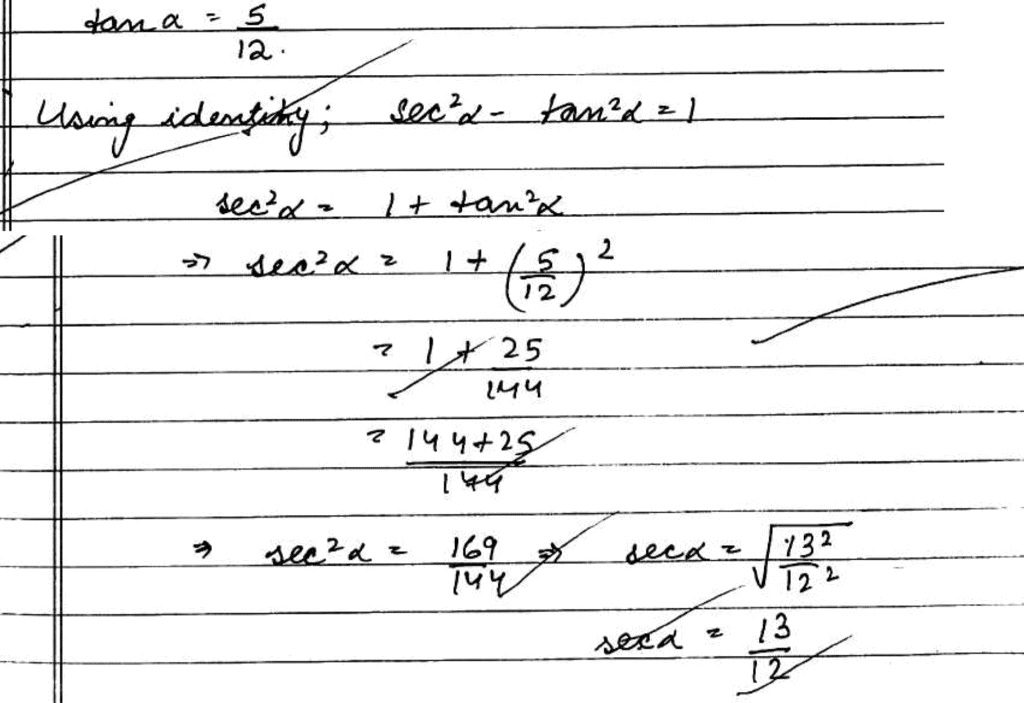 tan α = 5/12.
Using identity; sec²α - tan²α = 1
sec²α = 1 + tan²α
⇒ sec²α = 1 + (5/12)²
= 1 + 25/144
= 144+25/144
⇒ sec²α = 169/144 ⇒ secα = √13²/12²
secα = 13/12